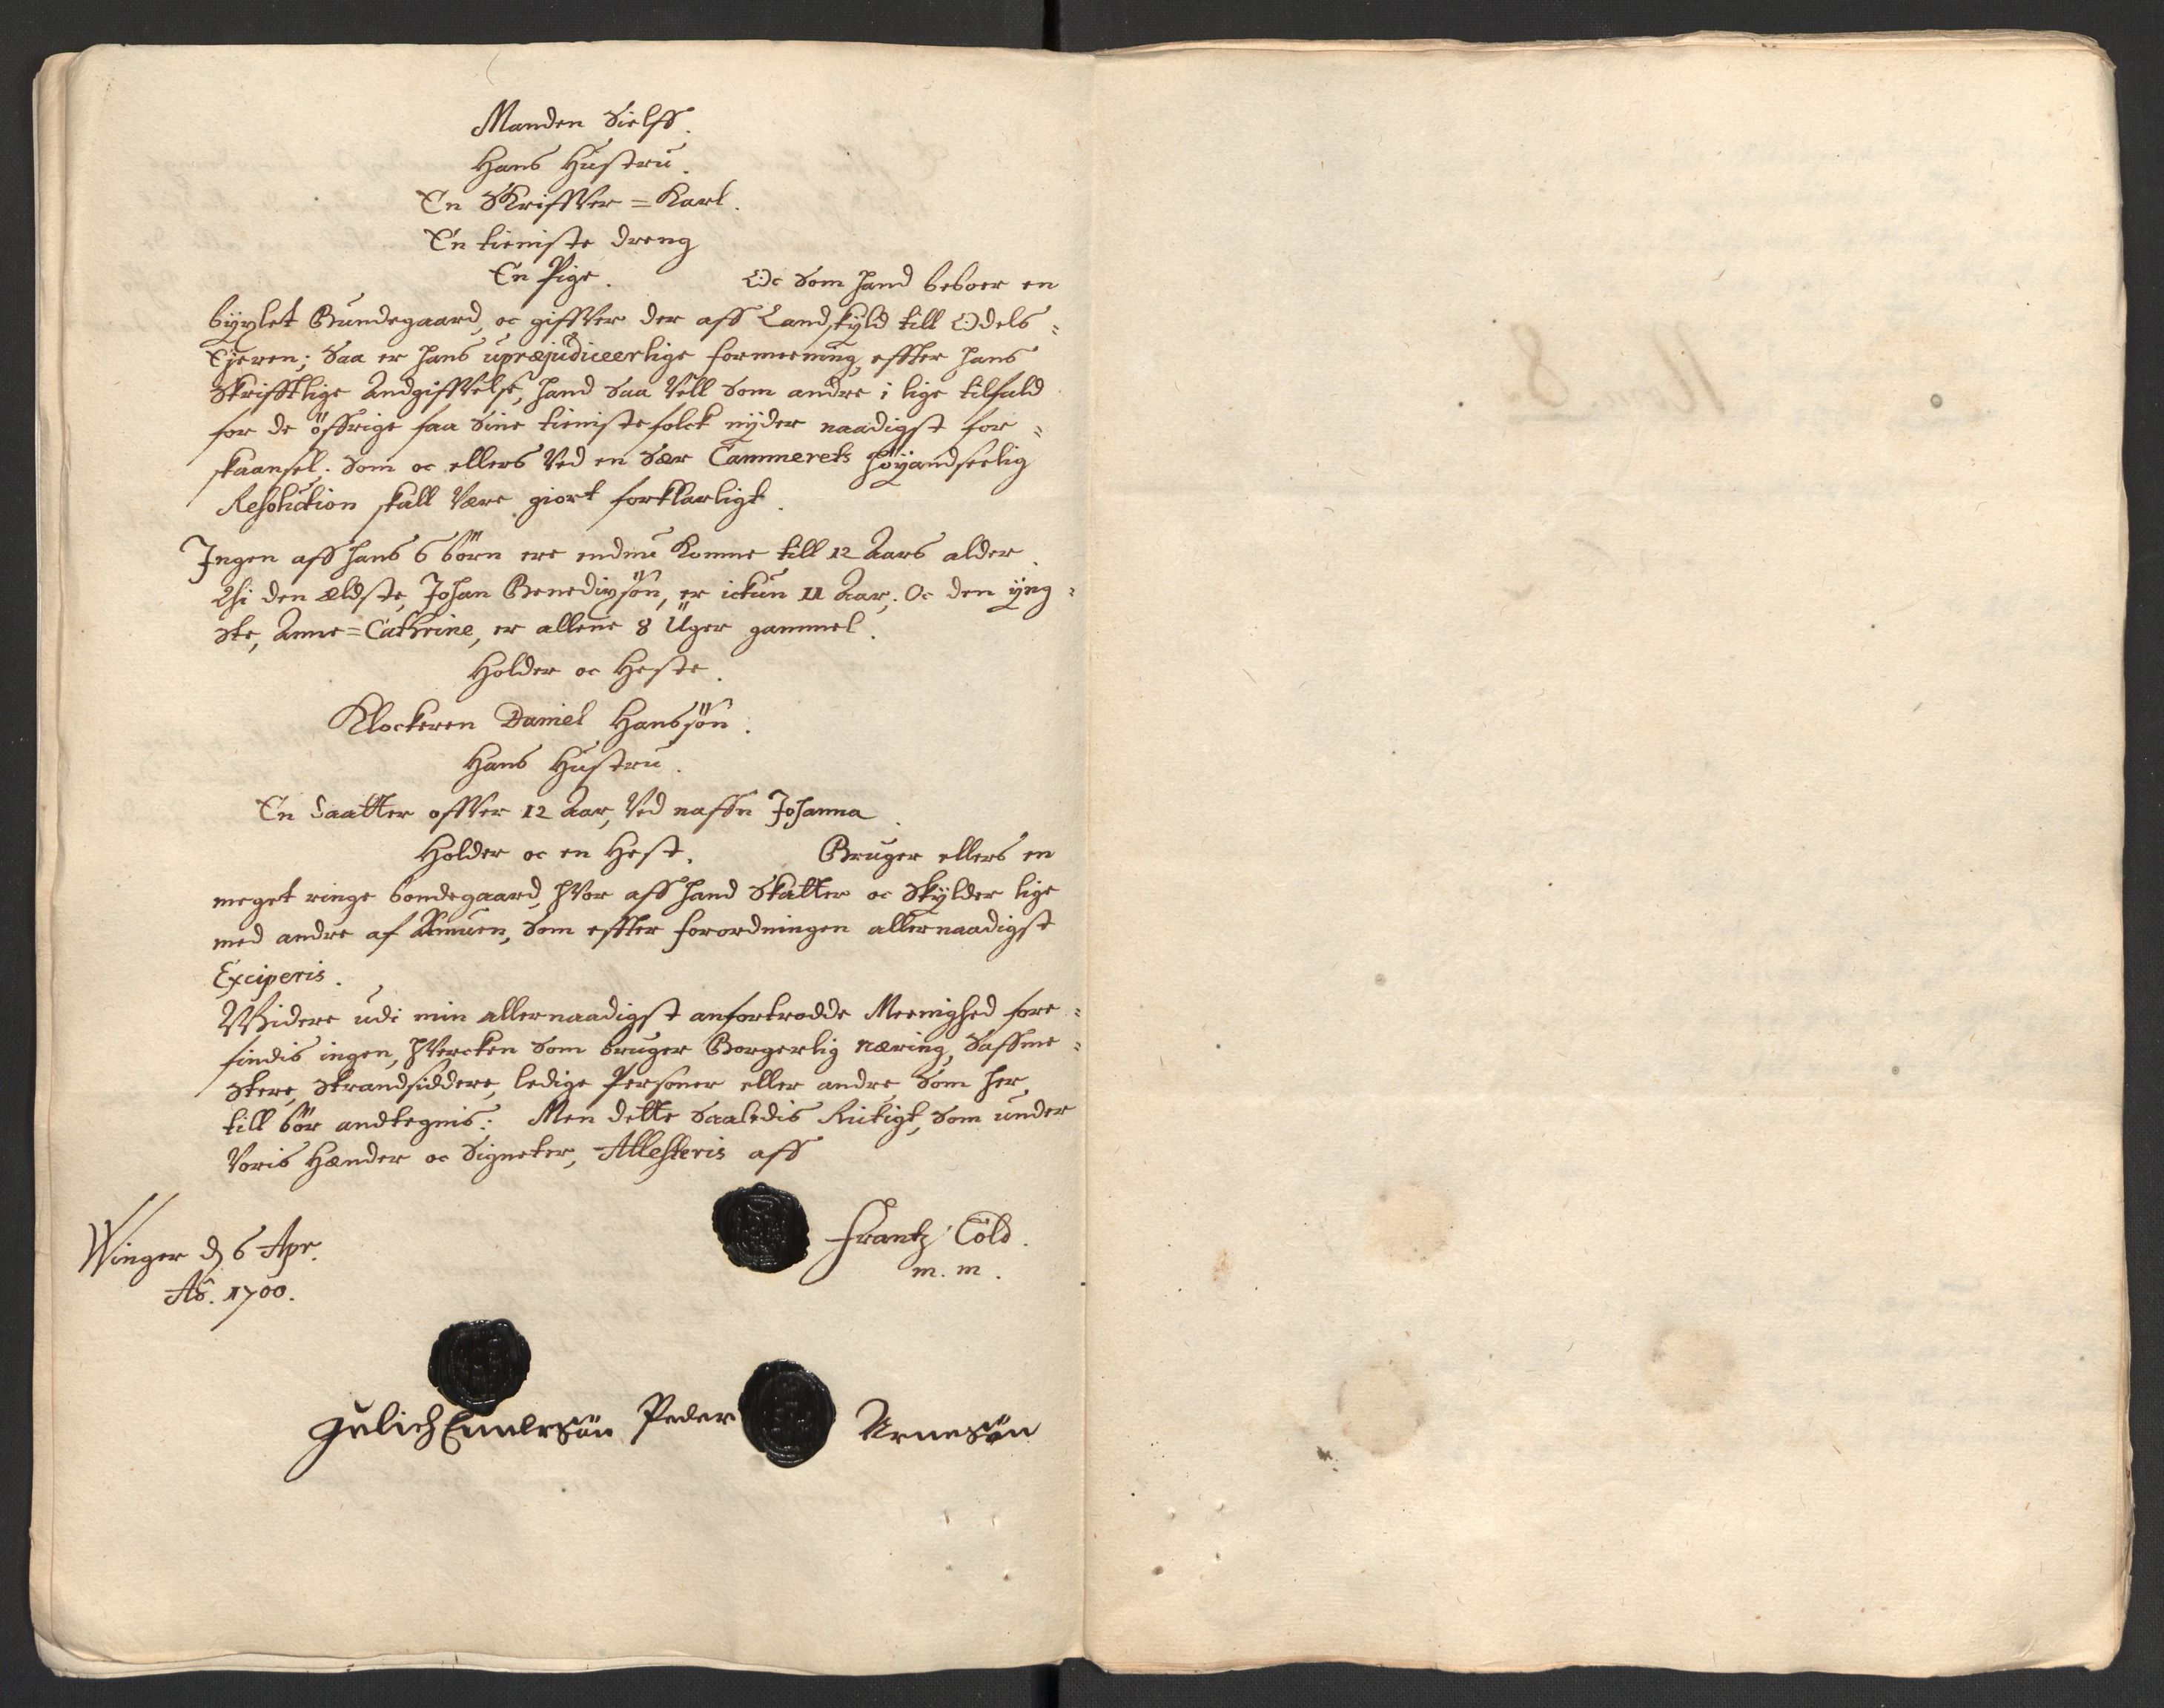 Manden Sielff.
Hans Hustru.
En Skriffver=Karl.
En tieniste dreng
En Pige. Oc Som hand beboer en
byxlet Bundegaard, oc giffver der aff Landskyld till Odels=
Ejeren; Saa er hans upræjudiceerlige formeening, effter hans
Skrifftlige Andgiffvelse, hand Saa Vell Som andre i lige tilfald
for de öffrige faa Sine tienistefolck nyder naadigst for=
skaansel. Som oc ellers Ved en Sær Cammerets Höyandseelig
Resolution skall Være giort forklarligt.
Ingen aff hans 6 börn ere endnu Komne till 12 Aars alder.
Thi den ældste, Johan Benedixsön, er ickun 11 Aar; Oc den yng=
ste, Anne=Cathrine, er allene 8 Uger gammel.
Holder oc Heste.
Klockeren Daniel Hanssön.
Hans Hustru.
En Daatter offver 12 Aar, Ved naffn Johanna.
Holder oc en Hest. Bruger ellers en
meget ringe bondegaard, hvor aff hand Skatter oc Skylder lige
med andre af Almuen, Som effter forordningen allernaadigst
Exciperis.
Widere udi min allernaadigst anfortrodde Meenighed fore=
findis ingen, hvercken Som bruger Borgerlig næring, Saffme=
stere, Strandsiddere, ledige Personer eller andre Som her
till bör andtegnis: Men dette Saaledis Rictigt, Som under
Voris Hænder oc Signeter, Attesteris aff
Winger d 6 Apr.
Aô. 1700.
Frantz Cold.
m. m.
Gulich Emersön Peder Arnesön
No. 8.